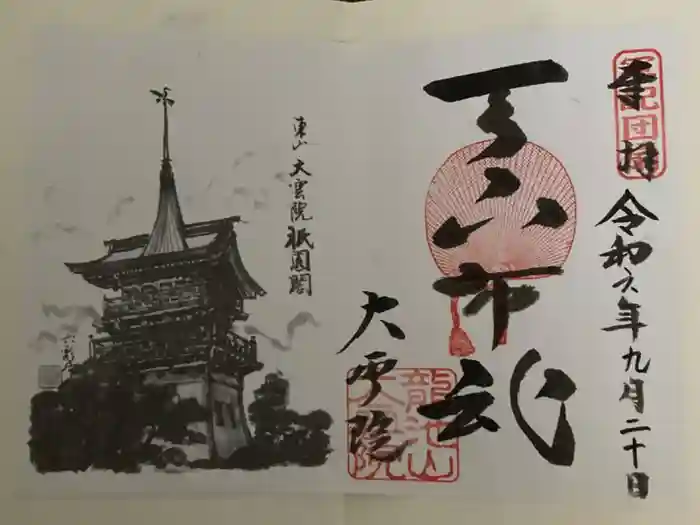 奉拝
令和六年九月二十日
天下布武
大雲院
龍池山
大雲院
東山 大雲院 祇園閣